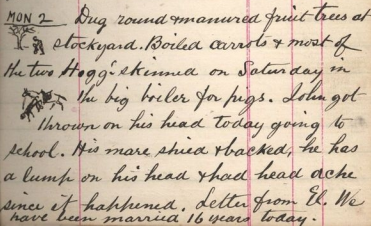 MON 2 Dug round & manured fruit trees at
stockyard. Boiled carrots & most of
the two Hogg's skinned on Saturday in
the big boiler for pigs. John got
thrown on his head today going to
school. His mare shied & backed, he has
a lump on his head & had head ache
since it happened. Letter from El. We
have been married 16 years today.